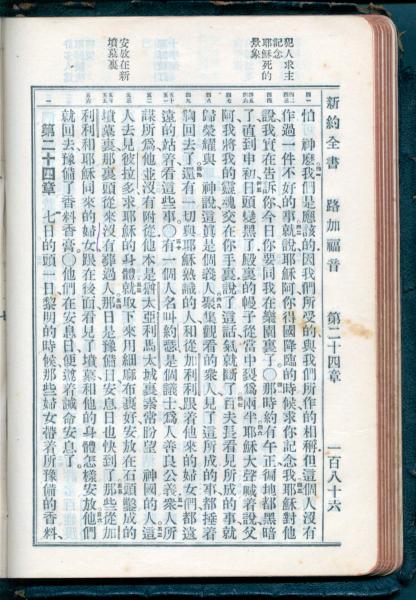 新約全書 路加福音 第二十四章 一百八十六
犯人求主
記念
耶穌死的
景象
安放在新
墳墓裏
怕 神麼我們是應該的因我們所受的與我們所作的相稱但這個人沒有
作過一件不好的事就說耶穌阿你得國降臨的時候求你記念我耶穌對他
說我實在告訴你今日你要同我在樂園裏了○那時約有午正徧地都黑暗
了直到申初日頭變黑了殿裏的幔子從當中裂爲兩半耶穌大聲喊着說父
阿我將我的靈魂交在你手裏說了這話氣就斷了百夫長看見所成的事就
歸榮耀與 神說這眞是個義人聚集觀看的衆人見了這所成的事都捶着
胸回去了還有一切與耶穌熟識的人和從加利利跟着他來的婦女們都遠
遠的站着看這些事○有一個人名叫約瑟是個議士爲人善良公義衆人所
謀所爲他並沒有附從他本是猶太亞利馬太城裏素常盼望 神國的人這
人去見彼拉多求耶穌的身體就取下來用細麻布裹好安放在石頭鑿成的
墳墓裏那裏頭從來沒有葬過人那日是豫備日安息日也快到了那些從加
利利和耶穌同來的婦女跟在後面看見了墳墓和他的身體怎樣安放他們
就回去豫備了香料香膏○他們在安息日便遵着誡命安息了
第二十四章 七日的頭一日黎明的時候那些婦女帶着所豫備的香料